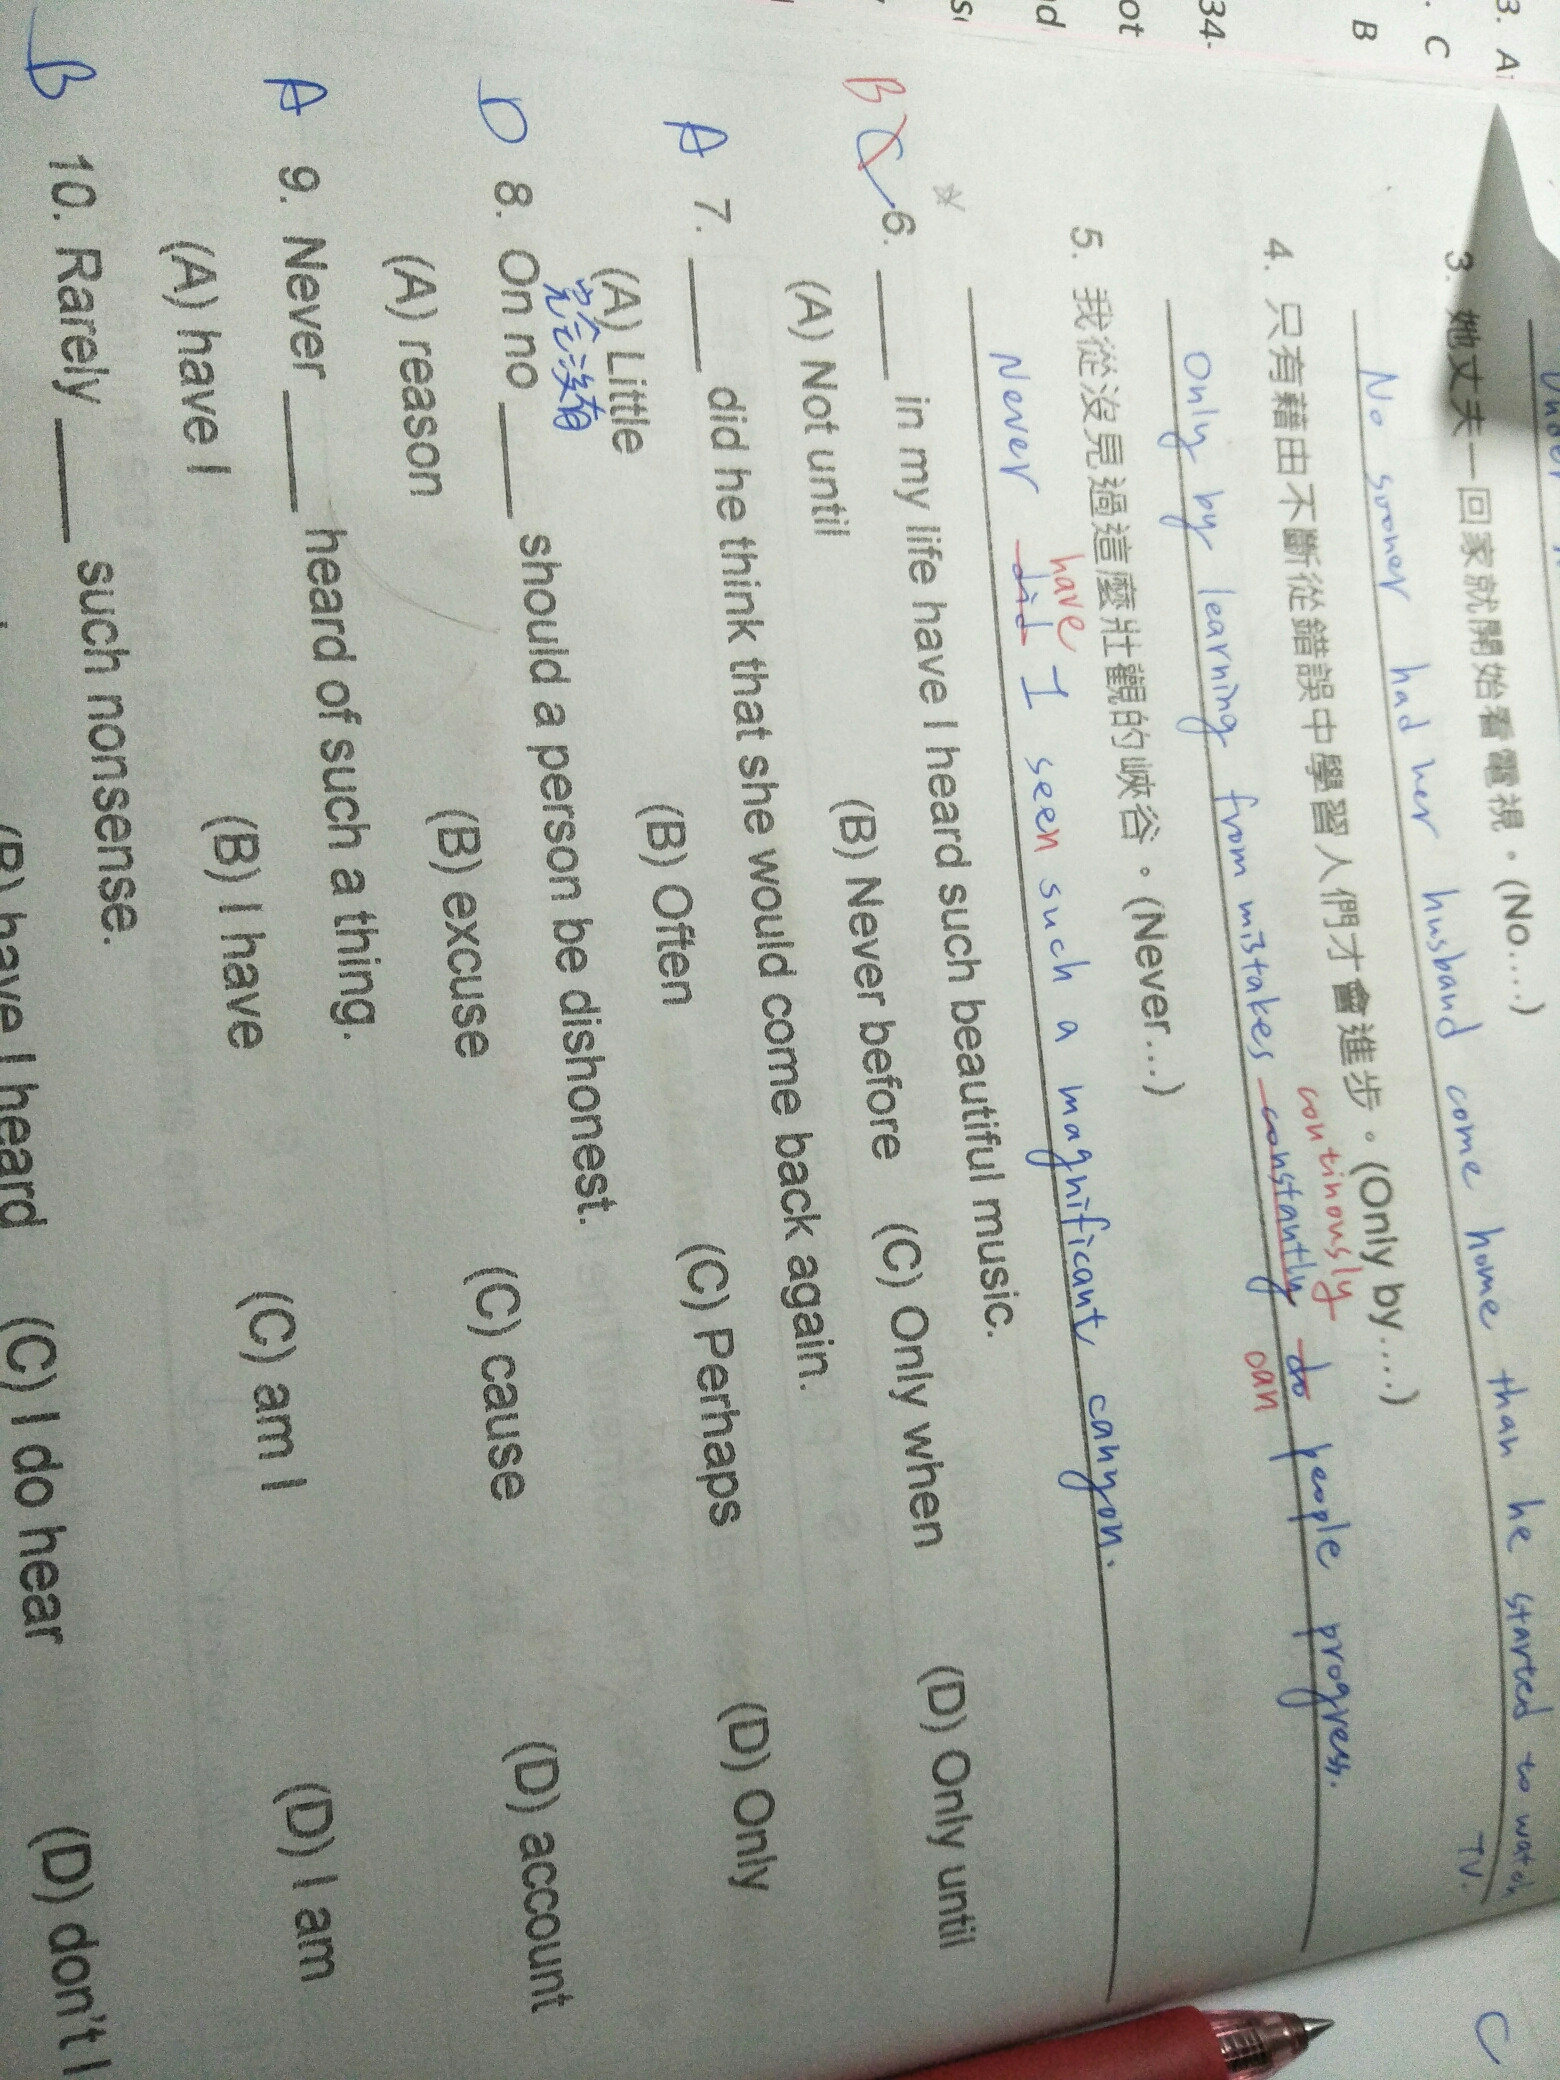 3. A
. C
B
34-
ot
nd
3. 她丈夫一回家就開始看電視。(No....)
No sooner had her husband come home than he started to watch
TV.
4. 只有藉由不斷從錯誤中學習人們才會進步。(Only by....)
continously
Only by learning from mistakes constantly do people progress.
can
5. 我從沒見過這麼壯觀的峽谷。(Never...)
have
Never did I seen such a magnificant canyon.
B C 6. ____ in my life have I heard such beautiful music.
(A) Not until (B) Never before (C) Only when (D) Only until
A 7. ____ did he think that she would come back again.
(A) Little (B) Often (C) Perhaps (D) Only
完全沒有
D 8. On no ____ should a person be dishonest.
(A) reason (B) excuse (C) cause (D) account
A 9. Never ____ heard of such a thing.
(A) have I (B) I have (C) am I (D) I am
B 10. Rarely ____ such nonsense.
(B) have I heard (C) I do hear (D) don't I
C